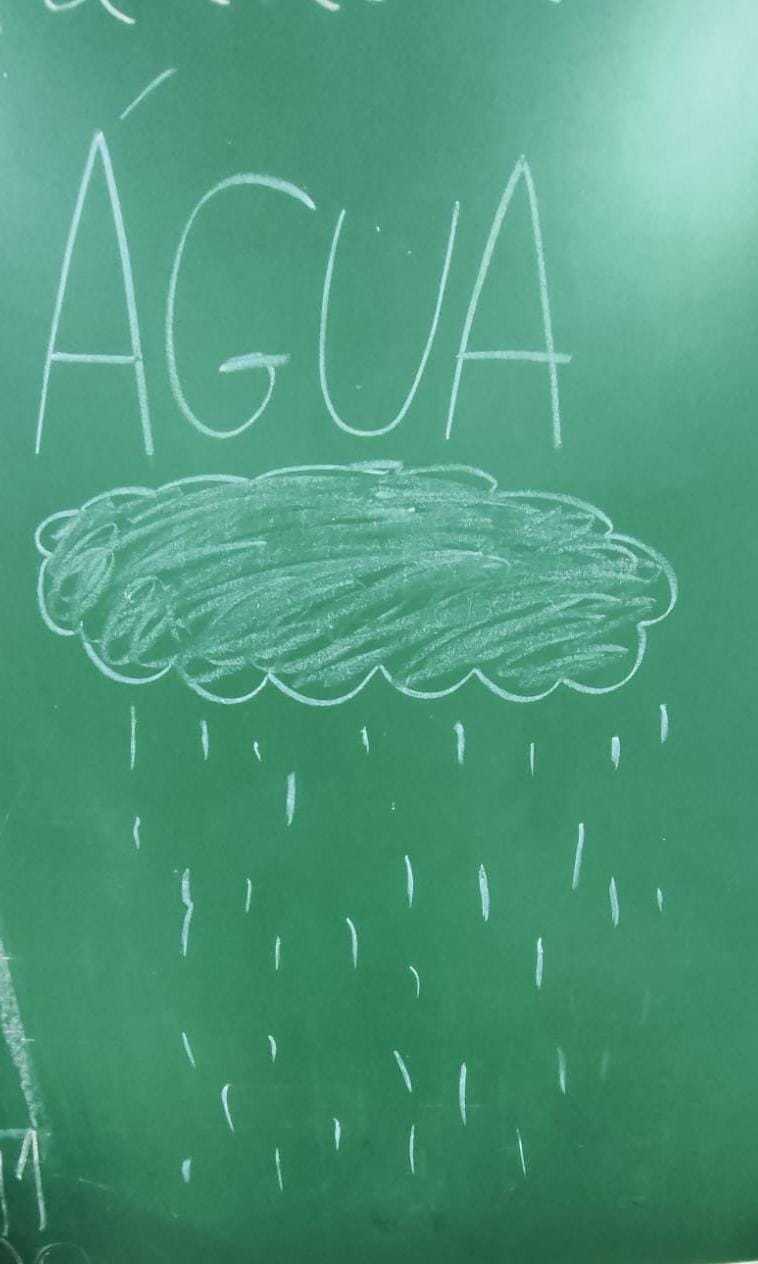 ÁGUA